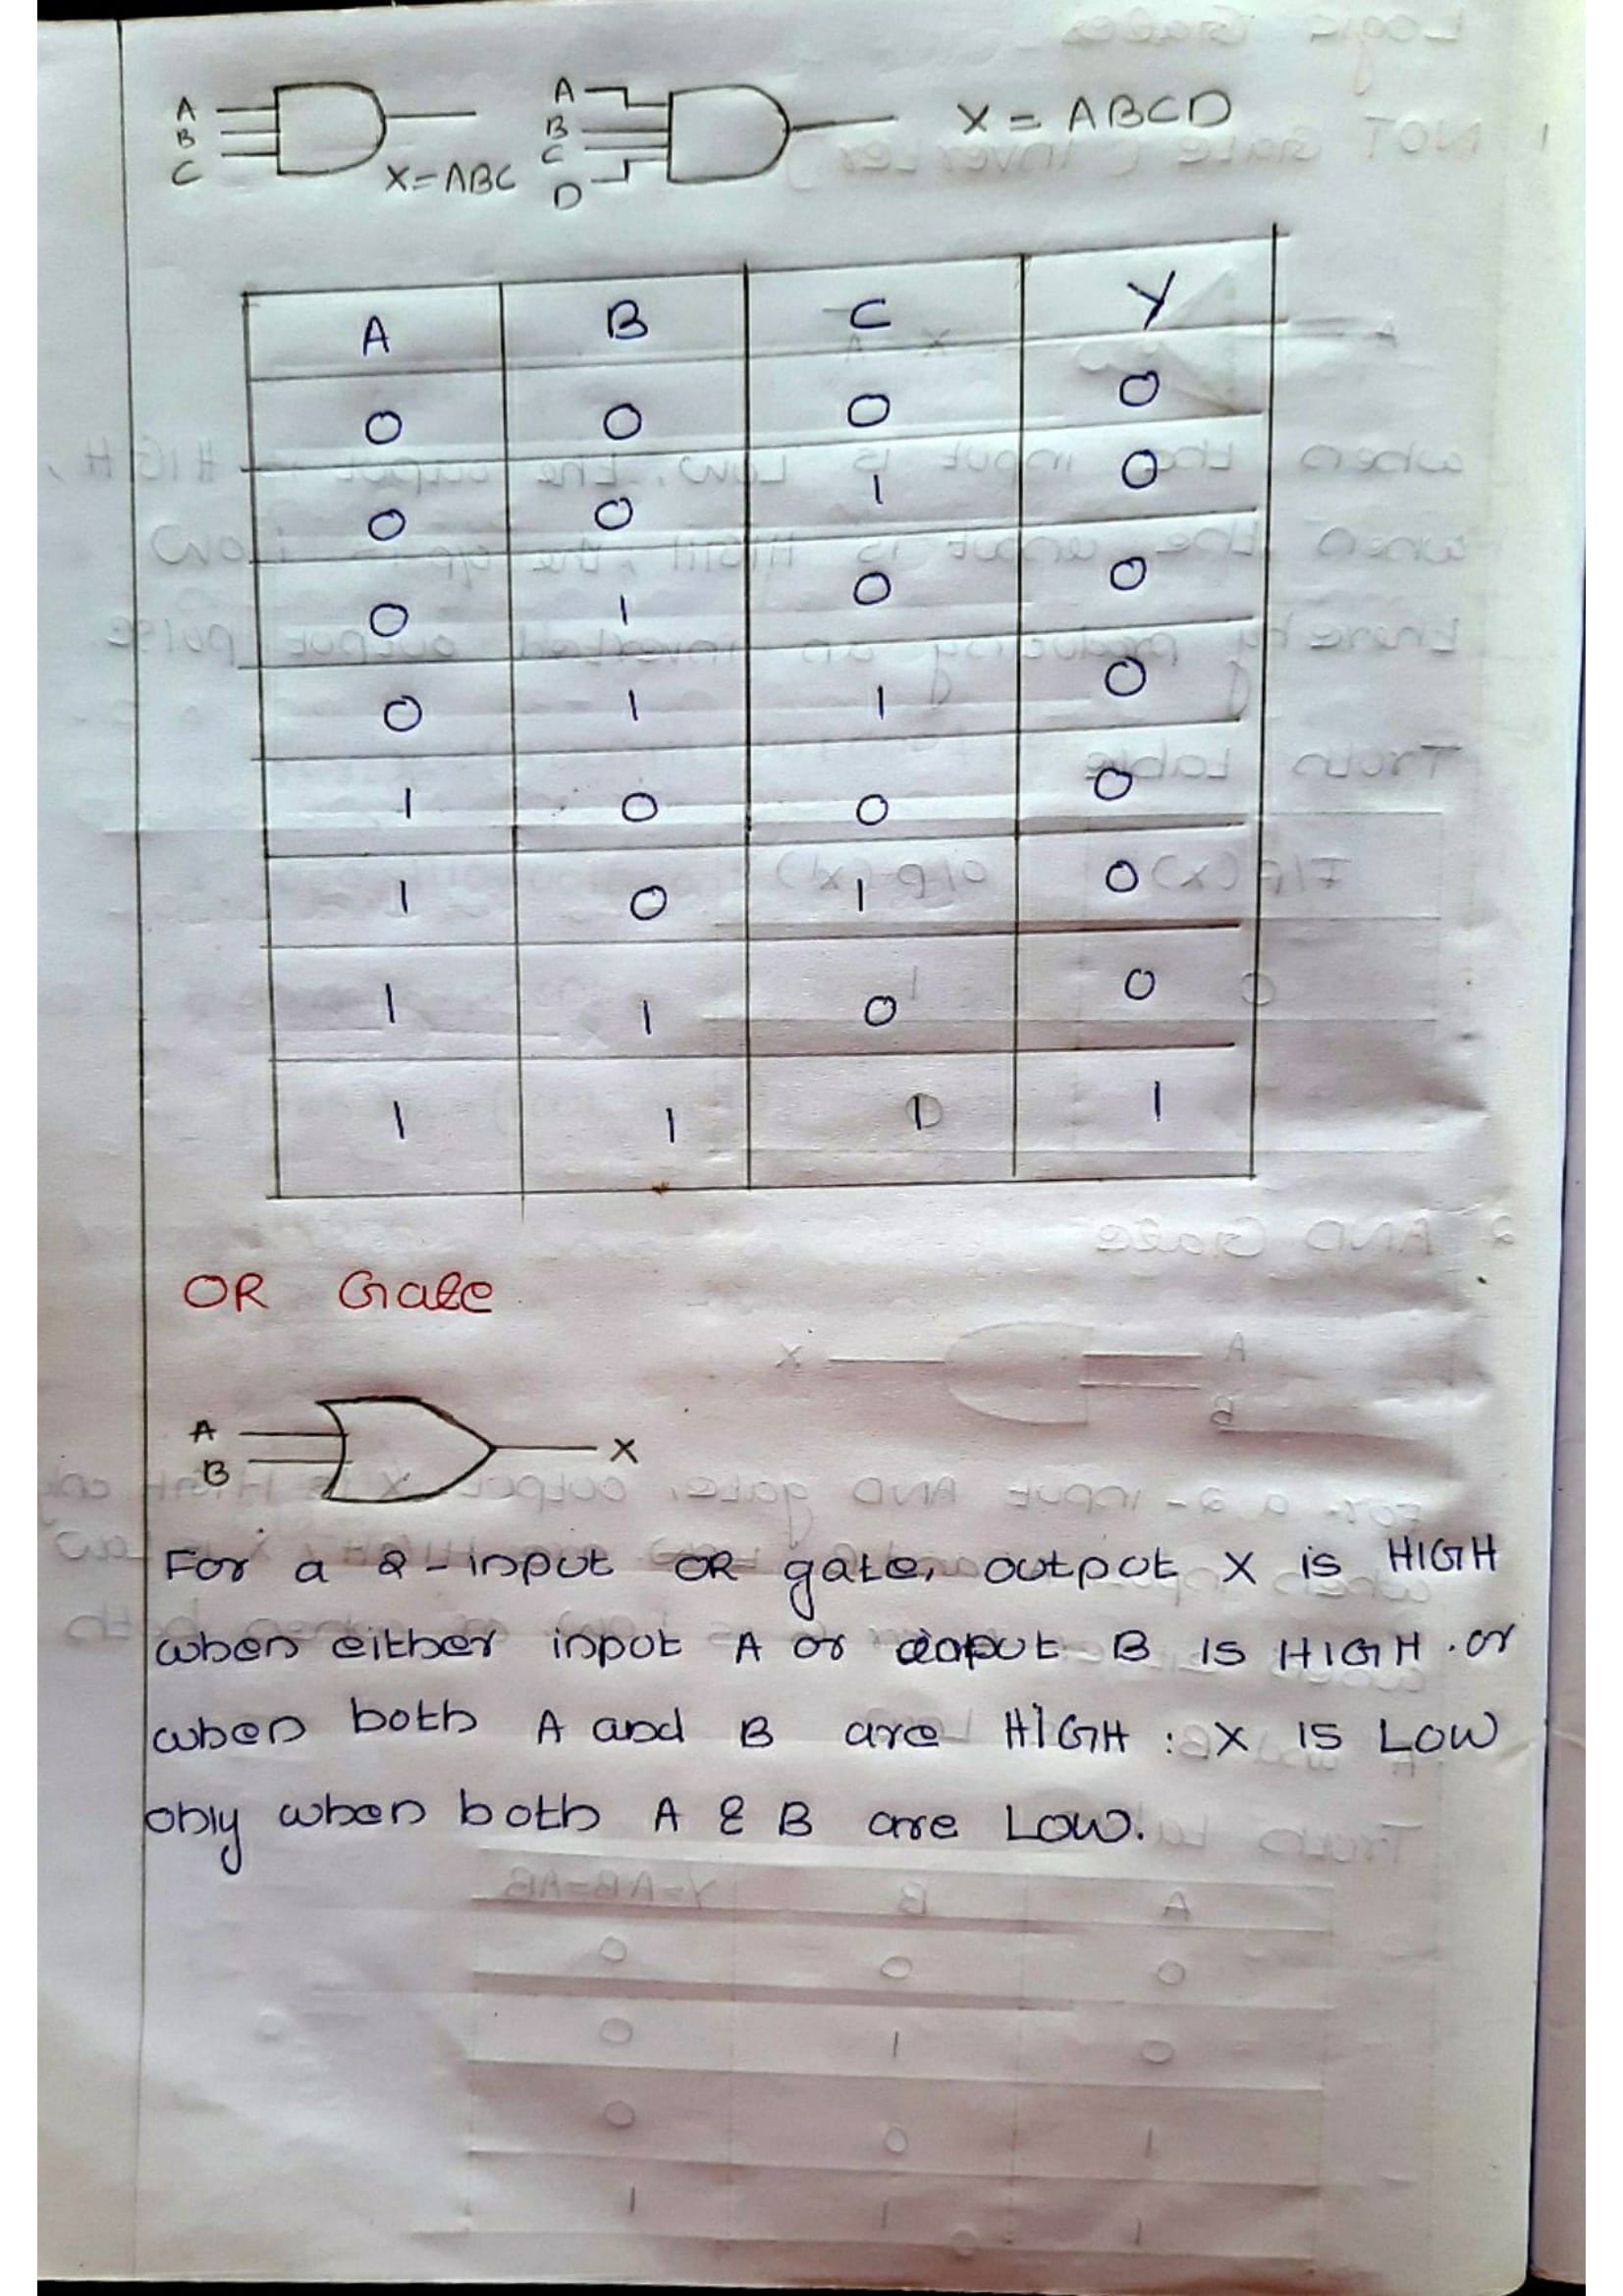 A
B
C
X=ABC
A
B
C
D
X = ABCD
A B C Y
0 0 0 0
0 0 1 0
0 1 0 0
0 1 1 0
1 0 0 0
1 0 1 0
1 1 0 0
1 1 1 1
OR Gate
A
B
X
For a 2-input OR gate, output X is HIGH
when either input A or input B is HIGH . or
when both A and B are HIGH : X is LOW
only when both A & B are LOW.